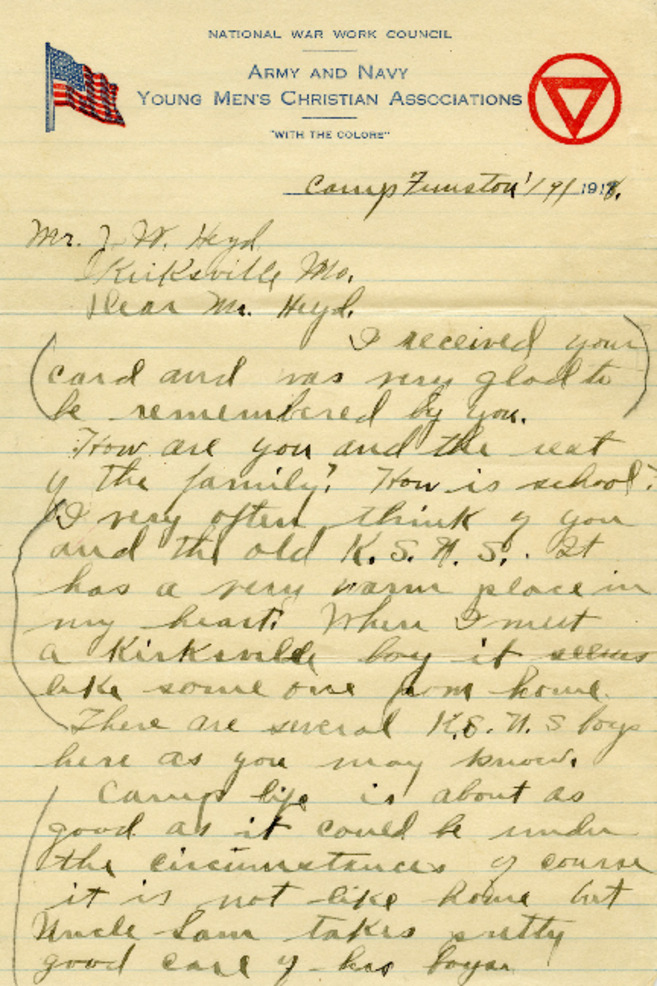 NATIONAL WAR WORK COUNCIL
ARMY AND NAVY
YOUNG MEN'S CHRISTIAN ASSOCIATIONS
"WITH THE COLORS"
Camp Funston 1/9/1918.
Mr. J. W. Heyd
Kirksville Mo.
Dear Mr. Heyd.
I received your
card and was very glad to
be remembered by you.
How are you and the rest
of the family? How is school?
I very often think of you
and the old K. S. N. S. It
has a very warm place in
my heart. When I meet
a Kirksville boy it seems
like some one from home.
There are several K.S.N.S boys
here as you may know.
Camp life is about as
good as it could be under
the circumstances of course
it is not like home but
Uncle Sam takes pretty
good care of his boys.